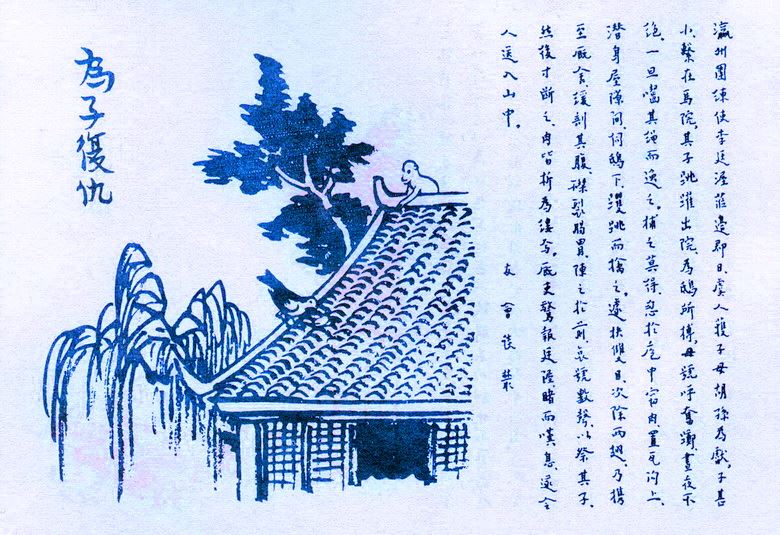 瀛州團練使李廷渥蒞邊郡日、虞人獲子母胡孫為戲。子甚
小、繫在馬院、其子跳躍出院、為鴟所搏、母號呼奮躑晝夜不
絕。一旦嚙其繩而逸之。捕之莫得、忽於庖中竊肉、置瓦溝上、
潛身屋隙間、伺鴟下、跳而擒之。遽抉雙目、次除兩翅、乃携
至廄舍、緩剖其腹、磔裂腸胃、陳之於前、哀號數聲、以祭其子。
然後寸斷之、肉皆折為縷。廄吏驚報廷渥、睹而嘆息、遂令
人送入山中。
友會談叢
為子復仇